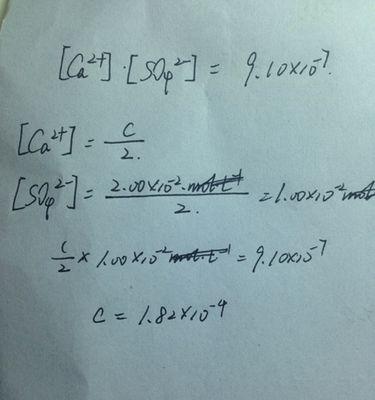 [Ca²⁺]·[SO₄²⁻] = 9.10×10⁻⁷.
[Ca²⁺] = C/2.
[SO₄²⁻] = 2.00×10⁻²·mol·L⁻¹/2. = 1.00×10⁻² mol
C/2 × 1.00×10⁻² mol·L⁻¹ = 9.10×10⁻⁷
C = 1.82×10⁻⁴